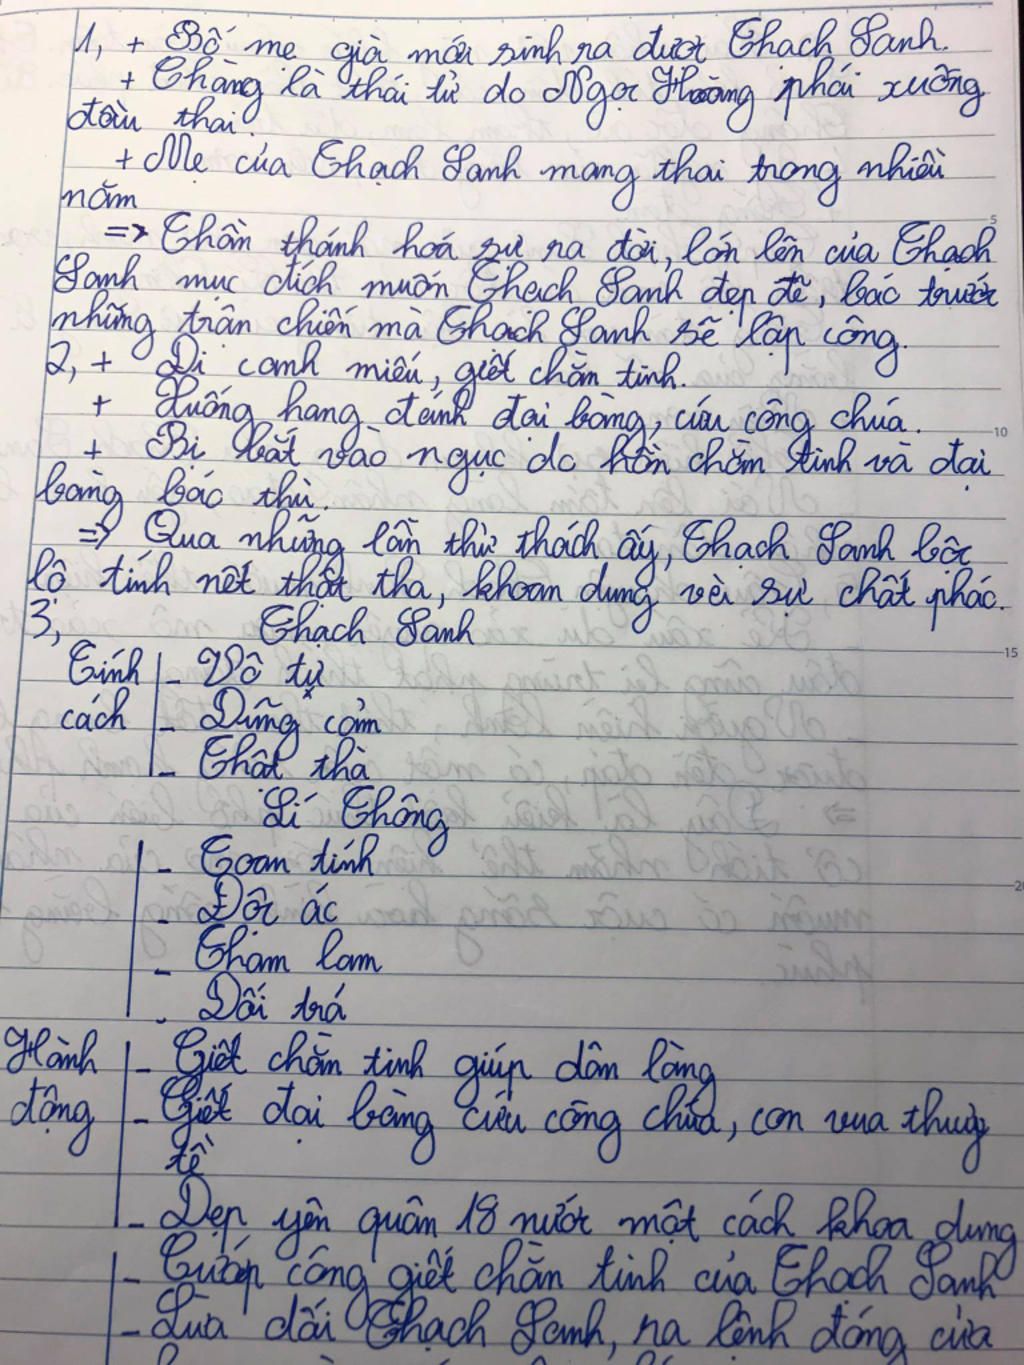 1, + Bố mẹ già mới sinh ra được Thạch Sanh.
+ Chàng là thái tử do Ngọc Hoàng phái xuống
đầu thai.
+ Mẹ của Thạch Sanh mang thai trong nhiều
năm
=> Thần thánh hoá sự ra đời, lớn lên của Thạch
Sanh mục đích muốn Thạch Sanh đẹp đẽ, báo trước
những trận chiến mà Thạch Sanh sẽ lập công.
2, + Đi canh miếu, giết chằn tinh.
+ Xuống hang đánh đại bàng, cứu công chúa.
+ Bị bắt vào ngục do hồn chằn tinh và đại
bàng báo thù.
=> Qua những lần thử thách ấy, Thạch Sanh bộc
lộ tính nết thật tha, khoan dung và sự chất phác.
3, Thạch Sanh
Tính - Vô tư
cách - Dũng cảm
- Thật thà
Lí Thông
- Toan tính
- Độc ác
- Tham lam
- Dối trá
Hành - Giết chằn tinh giúp dân làng
động - Giết đại bàng cứu công chúa, con vua thuỷ
tề
- Dẹp yên quân 18 nước một cách khoan dung
- Cướp công giết chằn tinh của Thạch Sanh
- Lừa dối Thạch Sanh, ra lệnh đóng cửa